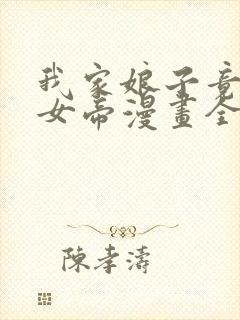 我家娘子竟
女帝漫畫全
陳孝濤